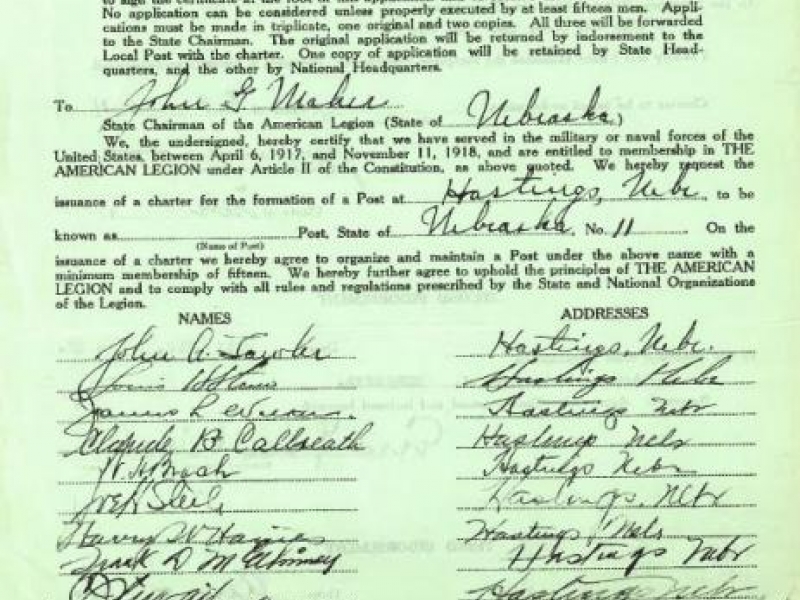 No application can be considered unless properly executed by at least fifteen men. Appli-
cations must be made in triplicate, one original and two copies. All three will be forwarded
to the State Chairman. The original application will be returned by indorsement to the
Local Post with the charter. One copy of application will be retained by State Head-
quarters, and the other by National Headquarters.
To John G Maher
State Chairman of the American Legion (State of Nebraska)
We, the undersigned, hereby certify that we have served in the military or naval forces of the
United States, between April 6, 1917, and November 11, 1918, and are entitled to membership in THE
AMERICAN LEGION under Article II of the Constitution, as above quoted. We hereby request the
issuance of a charter for the formation of a Post at Hastings, Nebr. to be
known as Post, State of Nebraska, No. 11 On the
(Name of Post)
issuance of a charter we hereby agree to organize and maintain a Post under the above name with a
minimum membership of fifteen. We hereby further agree to uphold the principles of THE AMERICAN
LEGION and to comply with all rules and regulations prescribed by the State and National Organizations
of the Legion.
NAMES ADDRESSES
John A. Hastings, Nebr.
Hastings Nebr
James L Hastings Nebr
Claude B Callseath Hastings Nebr
Hastings Nebr
Hastings, Nebr
Harry W Haines Hastings, Nebr
Frank D Hastings Nebr
Hastings Nebr